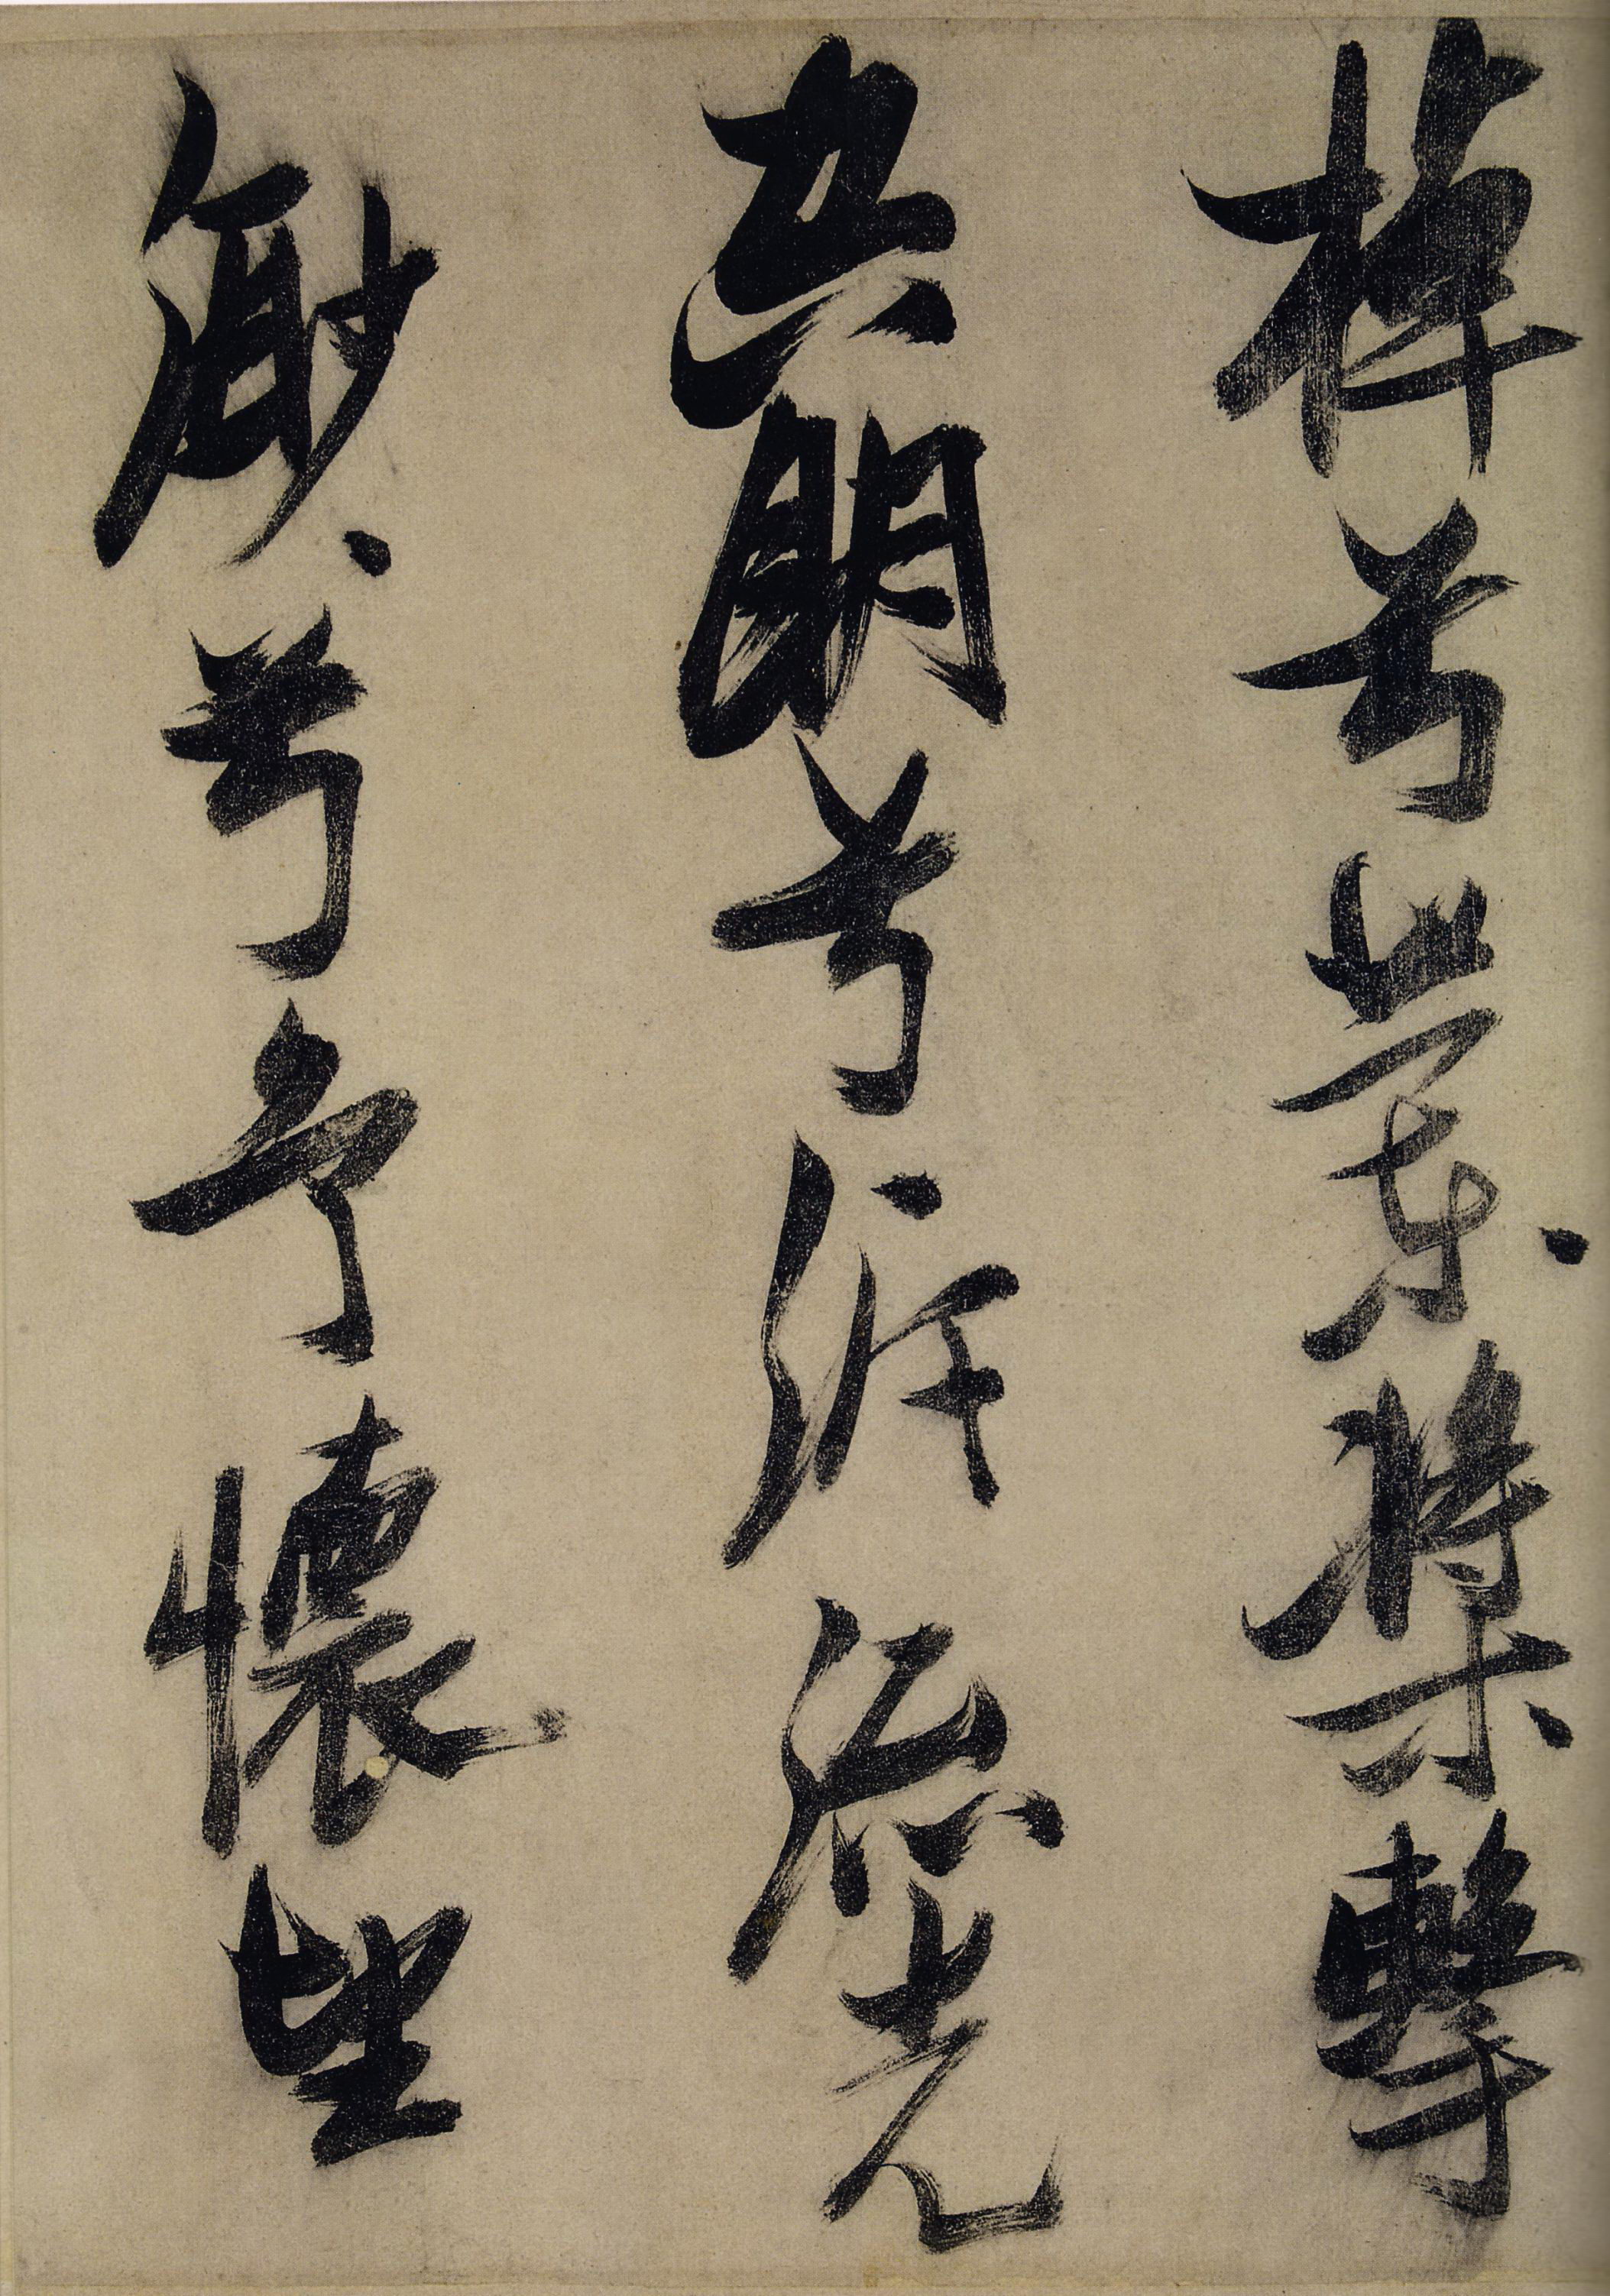 棹兮蘭槳擊
空明兮泝流光
渺、兮予懷望